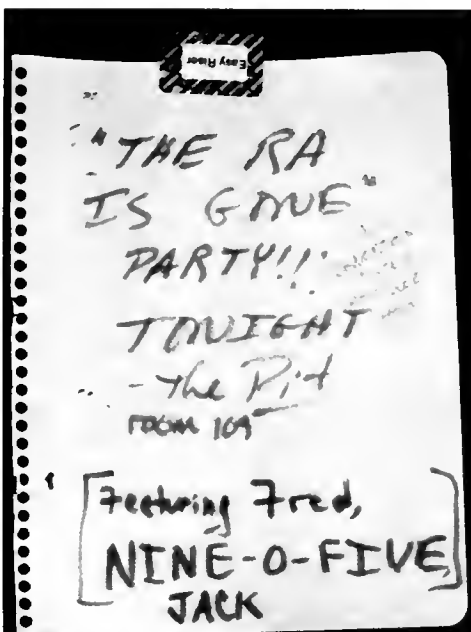 Easy Rider
"THE RA
IS GONE"
PARTY!!!
TONIGHT
- The Pit
ROOM 109
[Featuring Fred,
NINE-O-FIVE,]
JACK